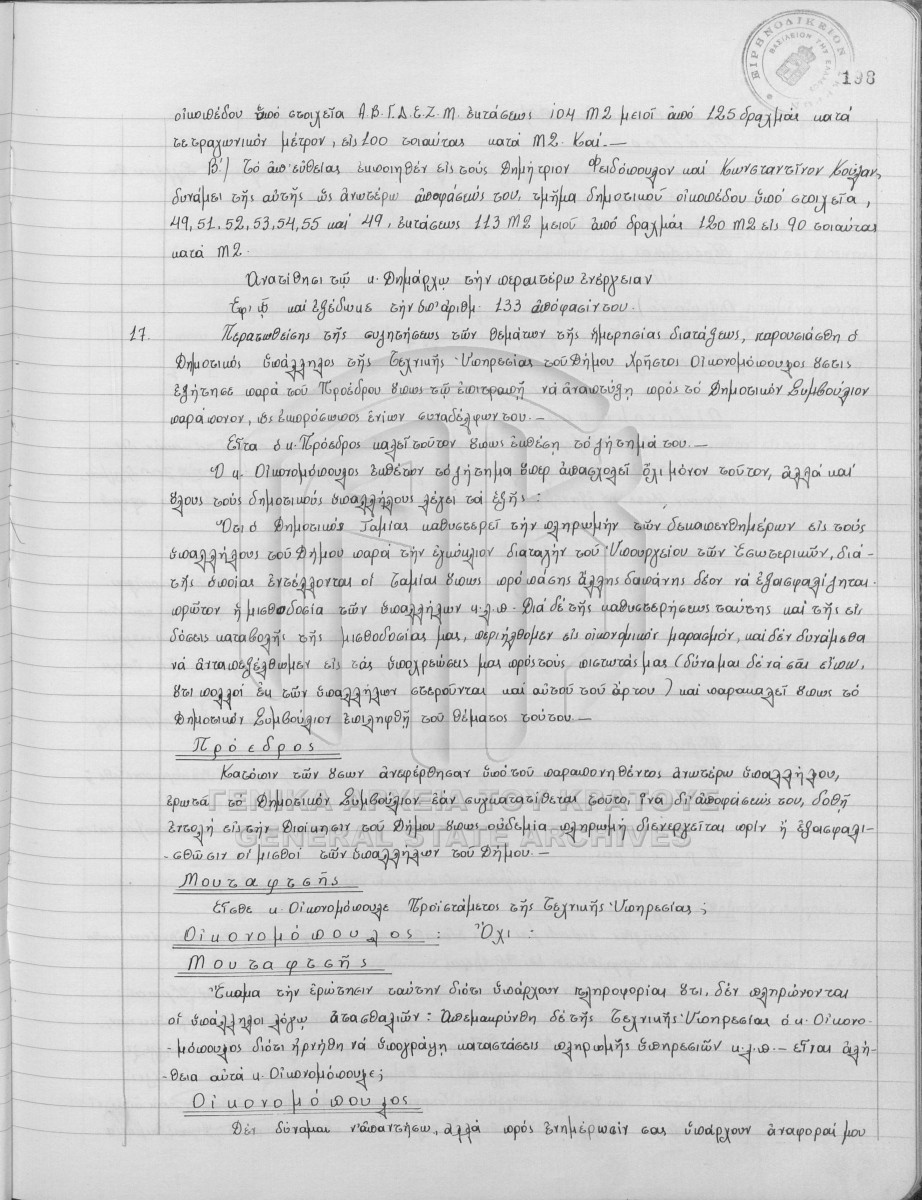 ΕΙΡΗΝΟΔΙΚΕΙΟΝ
ΒΑΣΙΛΕΙΟΝ ΤΗΣ ΕΛΛΑΔΟΣ
198
οἰκοπέδου ὑπό στοιχεῖα Α.Β.Γ.Δ.Ε.Ζ.Μ. ἐκτάσεως 104 Μ2 μειοῖ ἀπό 125 δραχμάς κατά
τετραγωνικόν μέτρον, εἰς 100 τοιαύτας κατά Μ2. Καί.—
Β΄/ Τό ἀπ' εὐθείας ἐκποιηθέν εἰς τούς Δημήτριον Φειδόπουλον καί Κωνσταντῖνον Κούλαν,
δυνάμει τῆς αὐτῆς ὡς ἀνωτέρω ἀποφάσεώς του, τμῆμα δημοτικοῦ οἰκοπέδου ὑπό στοιχεῖα,
49, 51, 52, 53, 54, 55 καί 49, ἐκτάσεως 113 Μ2 μειοῖ ἀπό δραχμάς 120 Μ2 εἰς 90 τοιαύτας
κατά Μ2.
Ἀνατίθησι τῷ κ. Δημάρχῳ τήν περαιτέρω ἐνέργειαν
Ἐφ' ᾧ καί ἐξέδωκε τήν ὑπ' ἀριθμ. 133 ἀπόφασίν του.
17. Περατωθείσης τῆς συζητήσεως τῶν θεμάτων τῆς ἡμερησίας διατάξεως, παρουσιάσθη ὁ
Δημοτικός ὑπάλληλος τῆς Τεχνικῆς Ὑπηρεσίας τοῦ Δήμου Χρῆστος Οἰκονομόπουλος ὅστις
ἐζήτησε παρά τοῦ Προέδρου ὅπως τῷ ἐπιτραπῇ νά ἀναπτύξῃ πρός τό Δημοτικόν Συμβούλιον
παράπονον, ὡς ἐκπρόσωπος ἐνίων συναδέλφων του.—
Εἶτα ὁ κ. Πρόεδρος καλεῖ τοῦτον ὅπως ἐκθέσῃ τό ζήτημά του.—
Ὁ κ. Οἰκονομόπουλος ἐκθέτων τό ζήτημα ὅπερ ἀπασχολεῖ ὄχι μόνον τοῦτον, ἀλλά καί
ὅλους τούς δημοτικούς ὑπαλλήλους λέγει τά ἑξῆς:
Ὅτι ὁ Δημοτικός Ταμίας καθυστερεῖ τήν πληρωμήν τῶν δεκαπενθημέρων εἰς τούς
ὑπαλλήλους τοῦ Δήμου παρά τήν ἐγκύκλιον διαταγήν τοῦ Ὑπουργείου τῶν Ἐσωτερικῶν, διά
τῆς ὁποίας ἐντέλλονται οἱ Ταμίαι ὅπως πρό πάσης ἄλλης δαπάνης δέον νά ἐξασφαλίζηται
πρῶτον ἡ μισθοδοσία τῶν ὑπαλλήλων κ.λ.π. Διά δέ τῆς καθυστερήσεως ταύτης καί τῆς εἰς
δόσεις καταβολῆς τῆς μισθοδοσίας μας, περιήλθομεν εἰς οἰκονομικόν μαρασμόν, καί δέν δυνάμεθα
νά ἀνταπεξέλθωμεν εἰς τάς ὑποχρεώσεις μας πρός τούς πιστωτάς μας (δύναμαι δέ νά σᾶς εἴπω,
ὅτι πολλοί ἐκ τῶν ὑπαλλήλων στεροῦνται καί αὐτοῦ τοῦ ἄρτου) καί παρακαλεῖ ὅπως τό
Δημοτικόν Συμβούλιον ἐπιληφθῇ τοῦ θέματος τούτου.—
Πρόεδρος
Κατόπιν τῶν ὅσων ἀνεφέρθησαν ὑπό τοῦ παραπονηθέντος ἀνωτέρω ὑπαλλήλου,
ἐρωτᾶ τό Δημοτικόν Συμβούλιον ἐάν συγκατατίθεται τοῦτο, ἵνα δι' ἀποφάσεώς του, δοθῇ
ἐντολή εἰς τήν Διοίκησιν τοῦ Δήμου ὅπως οὐδεμία πληρωμή διενεργεῖται πρίν ἤ ἐξασφαλι-
-σθῶσιν οἱ μισθοί τῶν ὑπαλλήλων τοῦ Δήμου.—
ΓΕΝΙΚΑ ΑΡΧΕΙΑ ΤΟΥ ΚΡΑΤΟΥΣ
GENERAL STATE ARCHIVES
Μουταφτσῆς
Εἶσθε κ. Οἰκονομόπουλε Προϊστάμενος τῆς Τεχνικῆς Ὑπηρεσίας;
Οἰκονομόπουλος: Ὄχι.
Μουταφτσῆς
Ἔκαμα τήν ἐρώτησιν ταύτην διότι ὑπάρχουν πληροφορίαι ὅτι, δέν πληρώνονται
οἱ ὑπάλληλοι λόγῳ ἀτασθαλιῶν: Ἀπεμακρύνθη δέ τῆς Τεχνικῆς Ὑπηρεσίας ὁ κ. Οἰκονο-
-μόπουλος διότι ἠρνήθη νά ὑπογράψῃ καταστάσεις πληρωμῆς ὑπηρεσιῶν κ.λ.π.— εἶναι ἀλή-
-θεια αὐτά κ. Οἰκονομόπουλε;
Οἰκονομόπουλος
Δέν δύναμαι ν' ἀπαντήσω, ἀλλά πρός ἐνημέρωσίν σας ὑπάρχουν ἀναφοραί μου